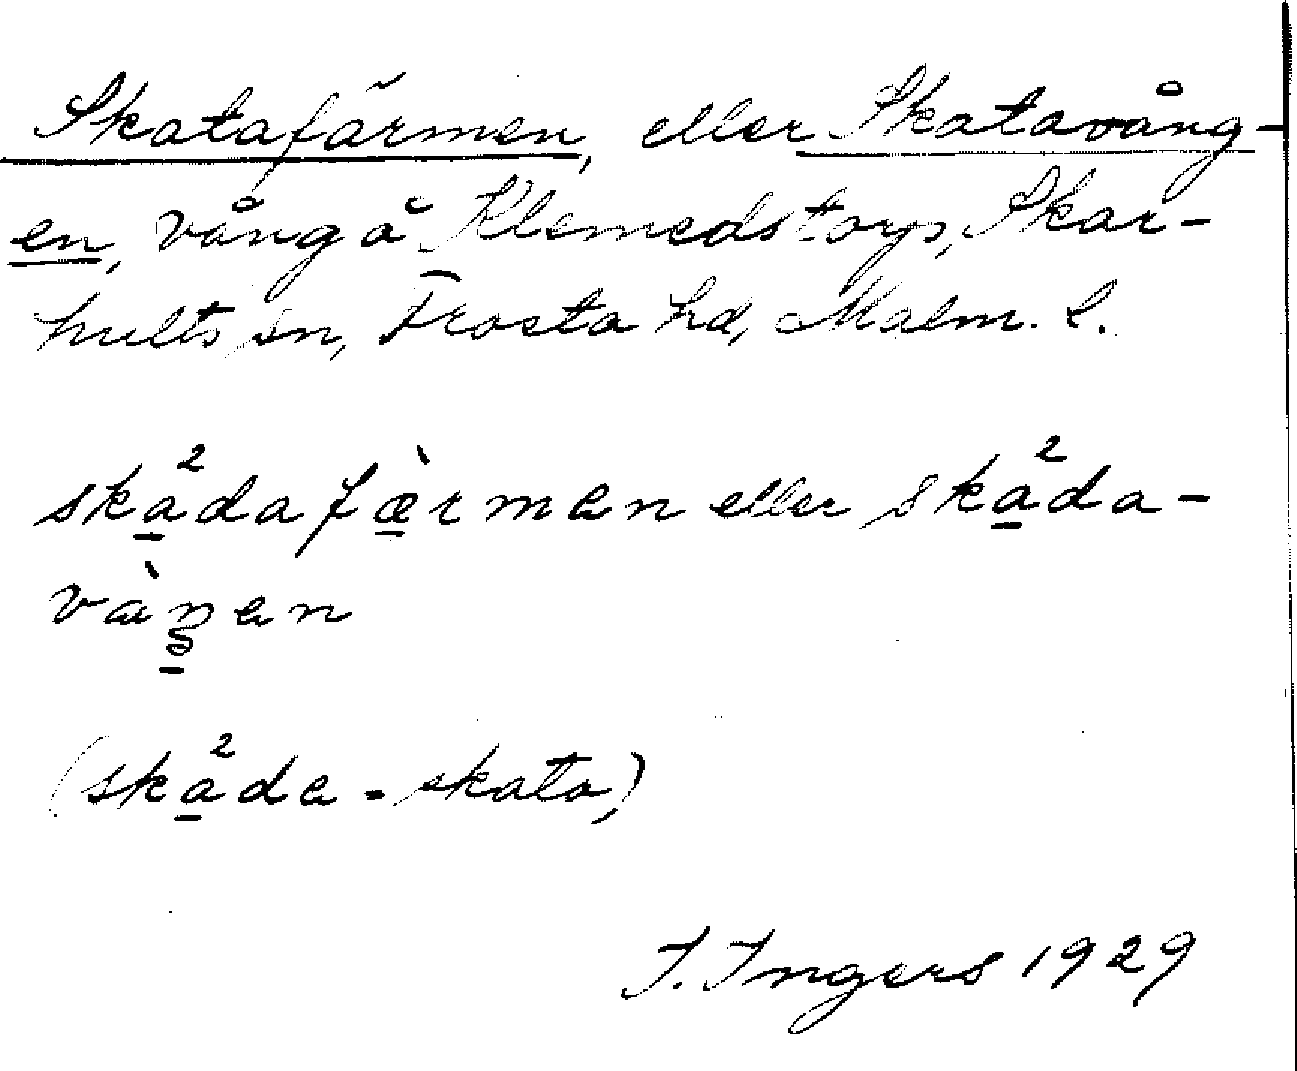 Skatafärmen, eller Skatavång-
en, vång å Klemedstorp, Skar-
hults sn, Frosta hd, Malm. l.
skå̱²dafæ̱̀rmen eller skå̱²da-
vàŋ̱en
(skå̱²da - skata)
I. Ingers 1929